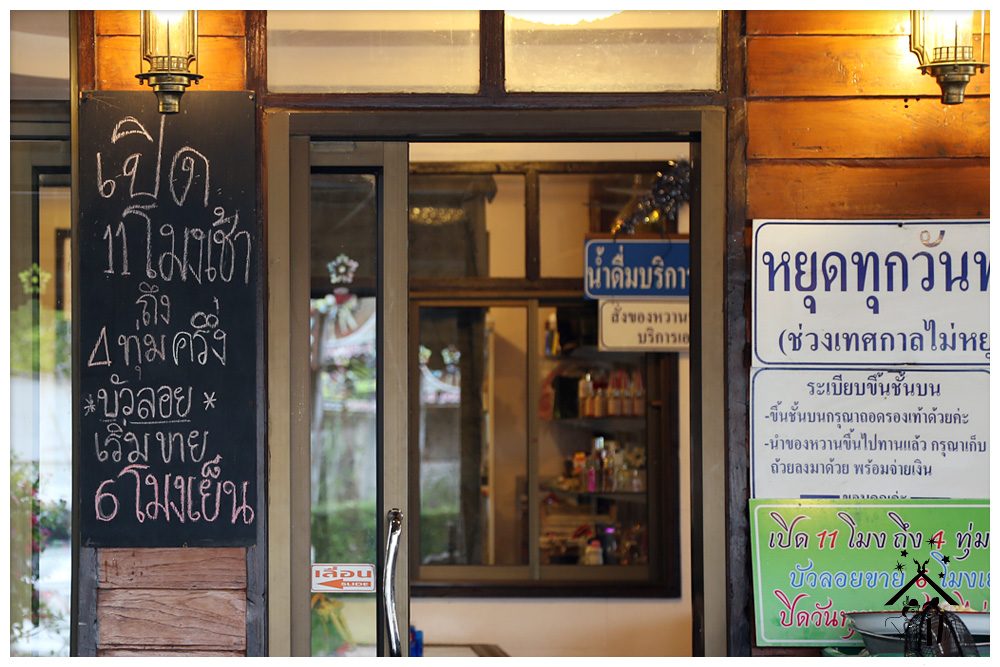 เปิด
11 โมงเช้า
ถึง
4 ทุ่มครึ่ง
*บัวลอย*
เริ่มขาย
6 โมงเย็น
น้ำดื่มบริการ
สั่งของหวาน
บริการ
เลื่อน
SLIDE
หยุดทุกวัน
(ช่วงเทศกาลไม่หยุ
ระเบียบขึ้นชั้นบน
-ขึ้นชั้นบนกรุณาถอดรองเท้าด้วยค่ะ
-นำของหวานขึ้นไปทานแล้ว กรุณาเก็บ
ถ้วยลงมาด้วย พร้อมจ่ายเงิน
ขอบคุณค่ะ
เปิด 11 โมง ถึง 4 ทุ่ม
บัวลอยขาย 6 โมงเ
ปิดวัน